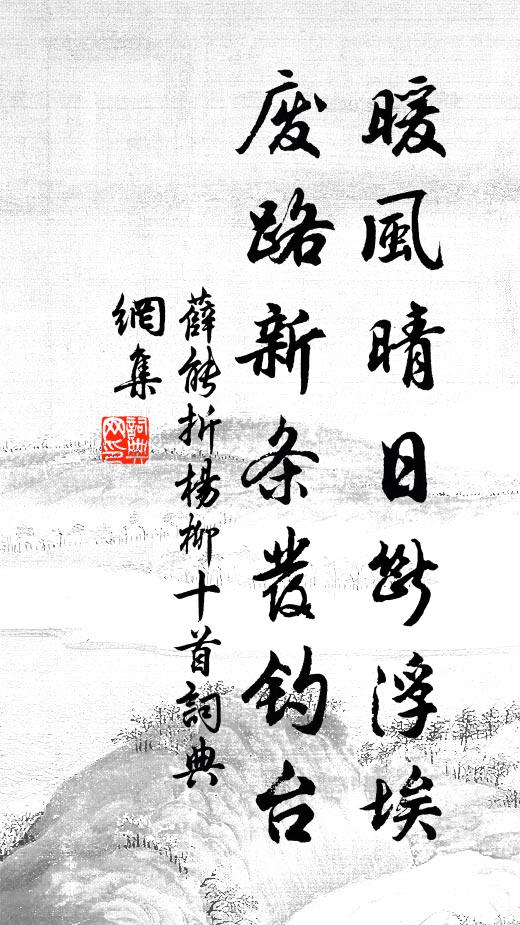 暖風晴日斷浮埃
废路新条發釣台
薛能折楊柳十首詞典
網集
詞典網印